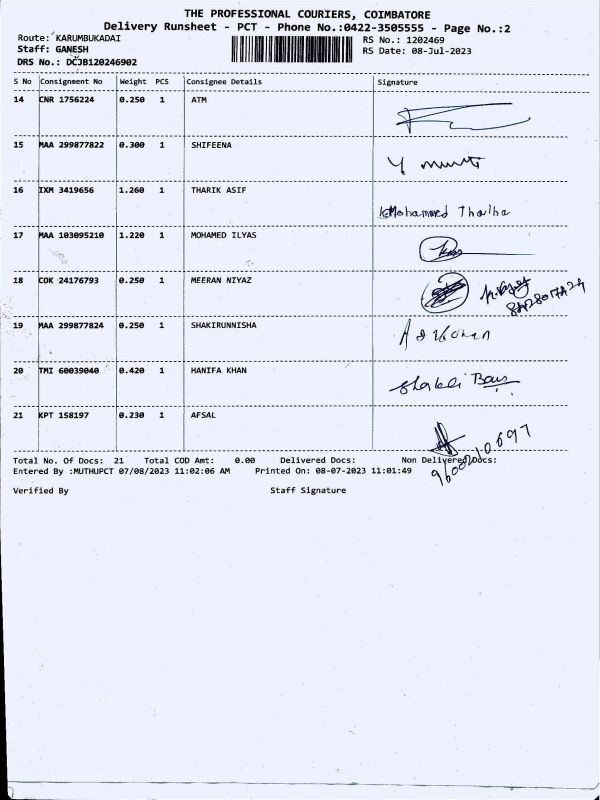 THE PROFESSIONAL COURIERS, COIMBATORE
Delivery Runsheet - PCT - Phone No.:0422-3505555 - Page No.:2
Route: KARUMBUKADAI RS No.: 1202469
Staff: GANESH RS Date: 08-Jul-2023
DRS No.: DCJB120246902
S No Consignment No Weight PCS Consignee Details Signature
14 CNR 1756224 0.250 1 ATM
15 MAA 299877822 0.300 1 SHIFEENA
16 IXM 3419656 1.260 1 THARIK ASIF
K Mohammed Thalha
17 MAA 103095210 1.220 1 MOHAMED ILYAS
18 COK 24176793 0.250 1 MEERAN NIYAZ
19 MAA 299877824 0.250 1 SHAKIRUNNISHA
20 TMI 60039040 0.420 1 HANIFA KHAN
21 KPT 158197 0.230 1 AFSAL
9600210697
Total No. Of Docs: 21 Total COD Amt: 0.00 Delivered Docs: Non Delivered Docs:
Entered By :MUTHUPCT 07/08/2023 11:02:06 AM Printed On: 08-07-2023 11:01:49
Verified By Staff Signature